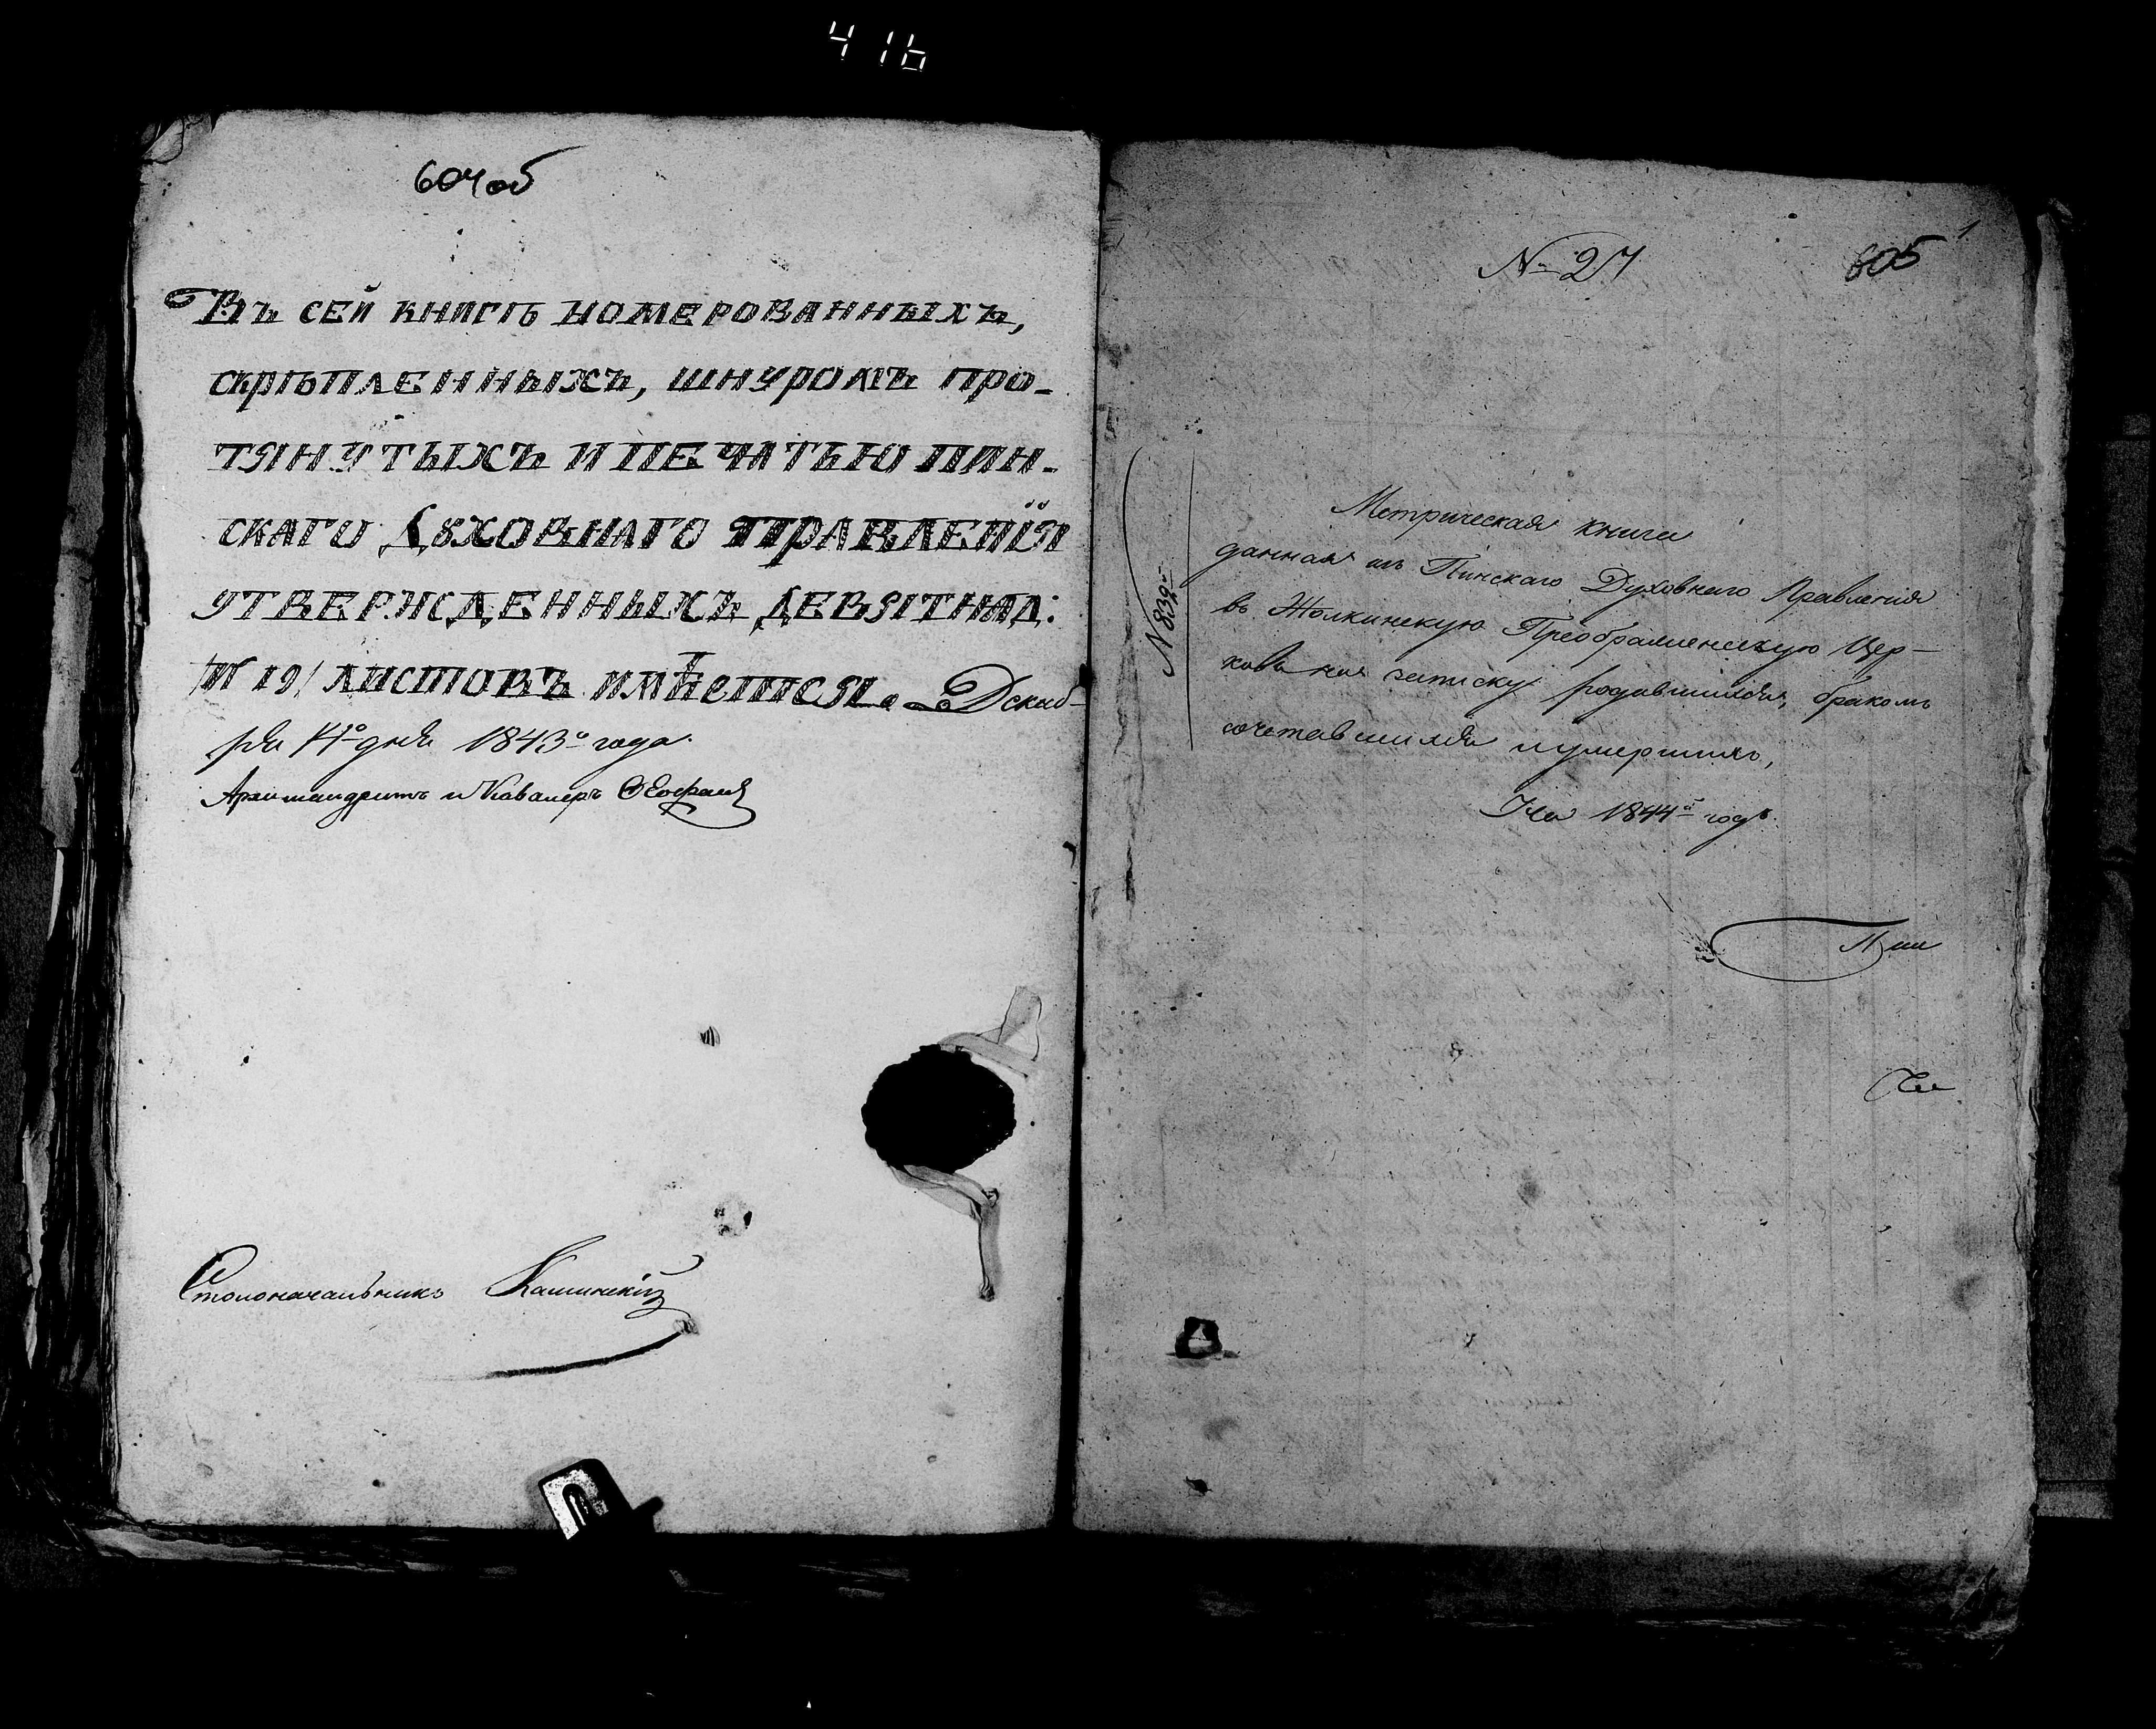 416
604об
Въ сей книгѣ номерованныхъ,
скрѣпленныхъ, шнуромъ про-
тянутыхъ и печатью Пин-
скаго Дꙋховнаго Правленія
утвержденныхъ девятнад:
/№ 19/ листовъ имѣется. Декаб-
ря 14º дня 1843º года.
Архимандритъ и Кавалеръ Ѳеофанъ
Столоначальникъ
1
№ 27
605
№ 839й
Метрическая книга
данная изъ Пинскаго Духовнаго Правленія
въ Жолкинскую Преображенскую Цер-
ковь на записку родившихся, бракомъ
сочетавшихся и умершихъ,
На 1844й годъ.